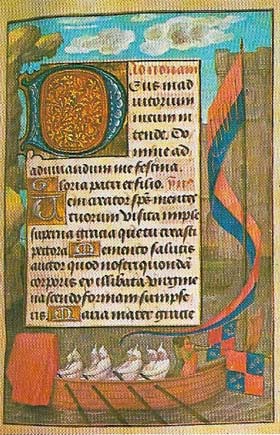 Ad nonam
Deus in ad
iutorium
meum in
tende. Do
mine ad
adiuuandum me festina.
Gloria patri et filio.
Veni creator sp̄s mentes
tuorum visita imple
superna gracia que tu creasti
pectora Memento salutis
auctor quod nostri quondā
corporis ex illibata virgine
nascendo formam sumpse
ris Maria mater gracie